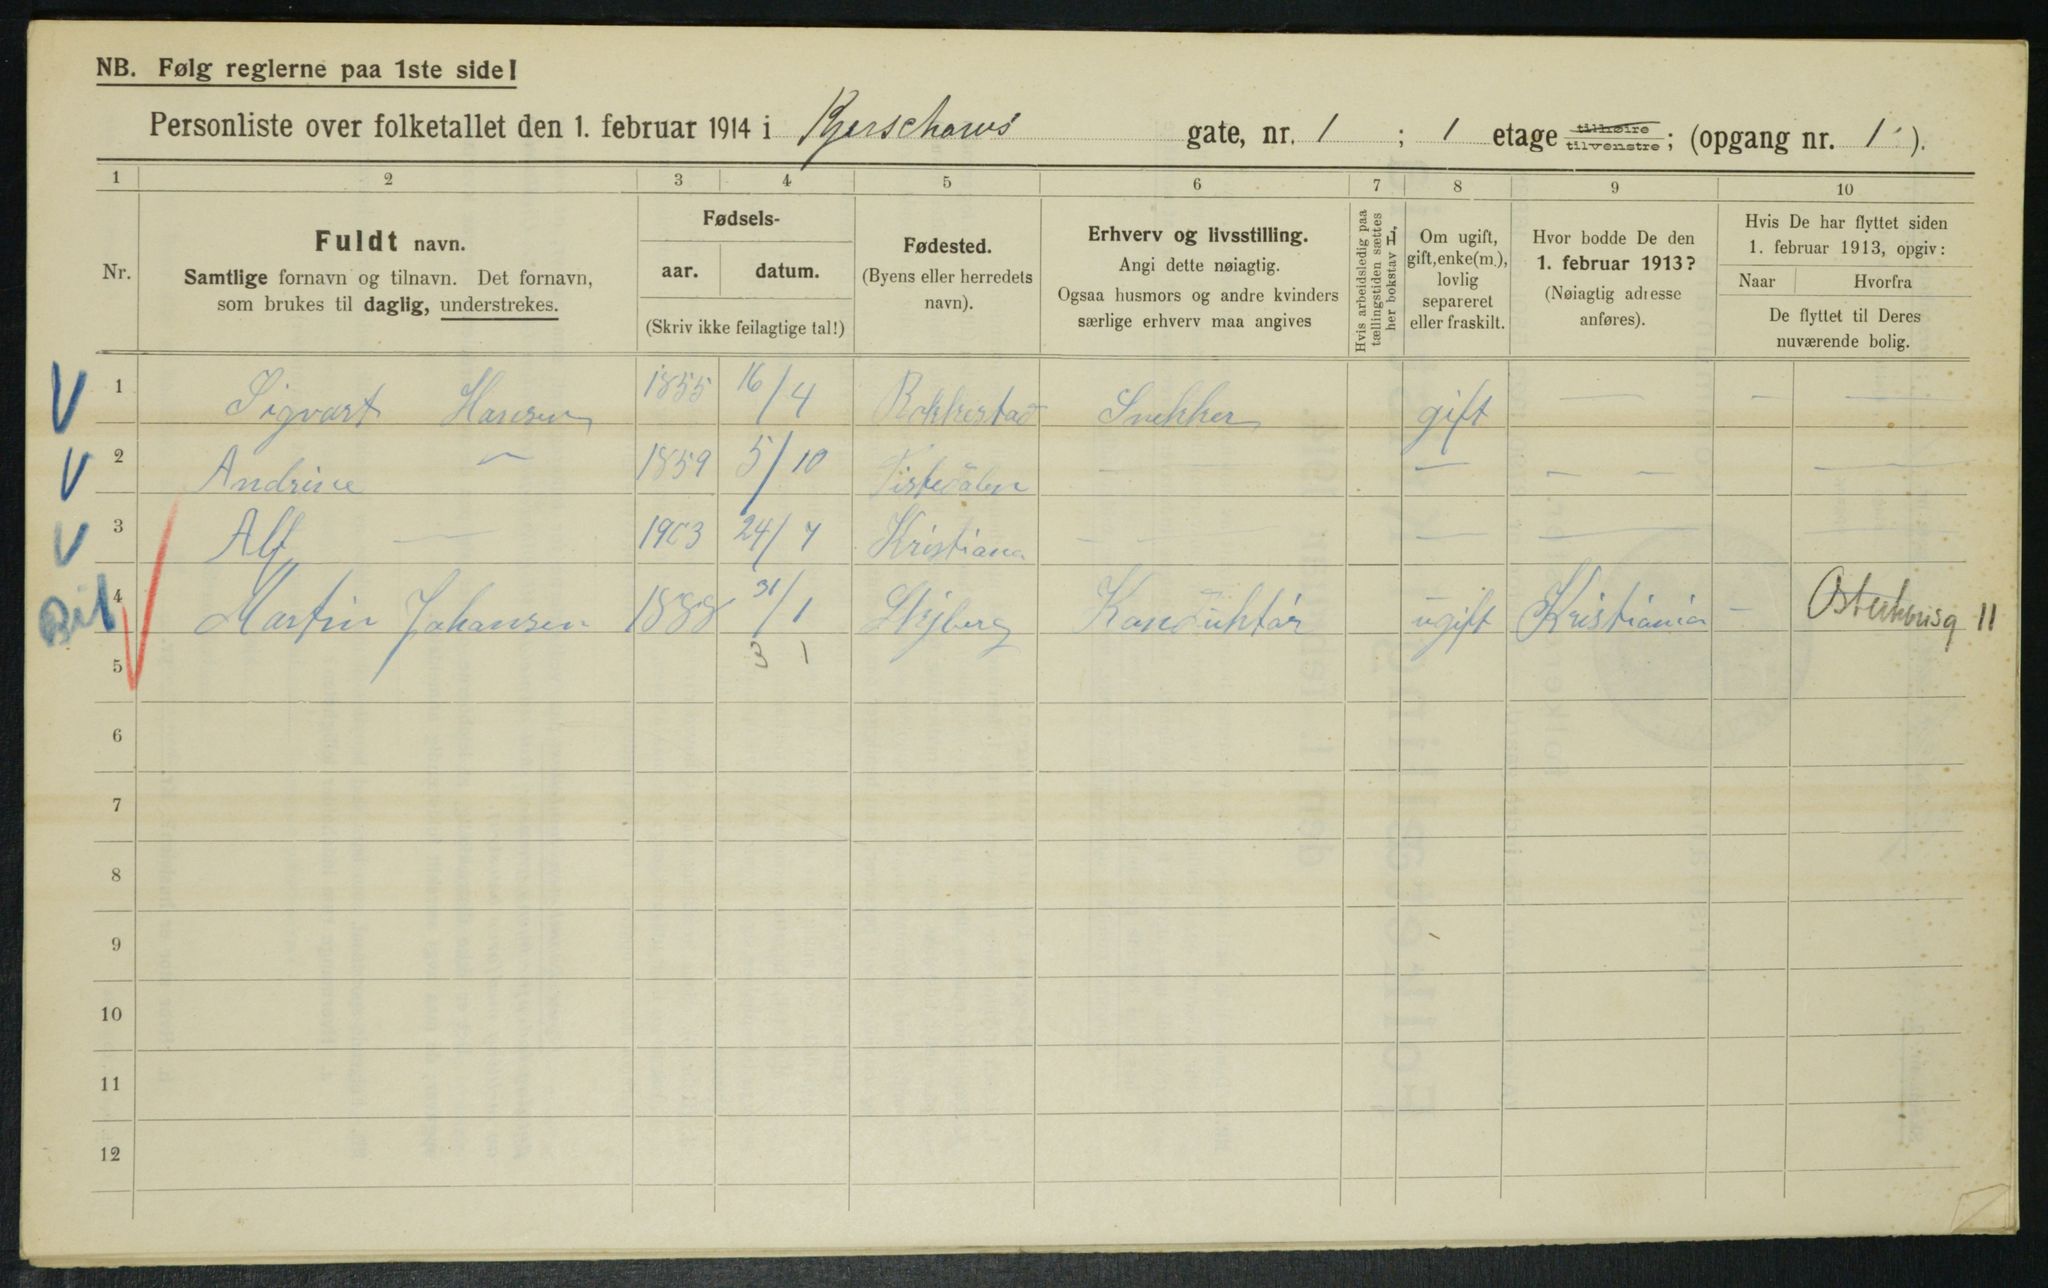 NB. Følg reglerne paa 1ste side!
Personliste over folketallet den 1. februar 1914 i Kjerschows gate, nr. 1 ; 1 etage tilhøire tilvenstre ; (opgang nr. 1 ).
1 2 3 4 5 6 7 8 9 10
Nr.
Fuldt navn.
Samtlige fornavn og tilnavn. Det fornavn,
som brukes til daglig, understrekes.
Fødsels-
aar. datum.
(Skriv ikke feilagtige tal!)
Fødested.
(Byens eller herredets
navn).
Erhverv og livsstilling.
Angi dette nøiagtig.
Ogsaa husmors og andre kvinders
særlige erhverv maa angives
Hvis arbeidsledig paa
tællingstiden sættes
her bokstav L,
Om ugift,
gift, enke(m.),
lovlig
separeret
eller fraskilt.
Hvor bodde De den
1. februar 1913?
(Nøiagtig adresse
anføres).
Hvis De har flyttet siden
1. februar 1913, opgiv:
Naar Hvorfra
De flyttet til Deres
nuværende bolig.
V 1 Sigvart Hansen 1855 16/4 Rokkestad Snekker gift — — —
V 2 Andrine — 1859 5/10 Tistedalen — — — — — —
V 3 Alf — 1903 24/7 Kristiana — — — — — —
4 Martin Johansen 1888 31/1 Konduktør ugift Kristiania — 11
3 1
5
6
7
8
9
10
11
12